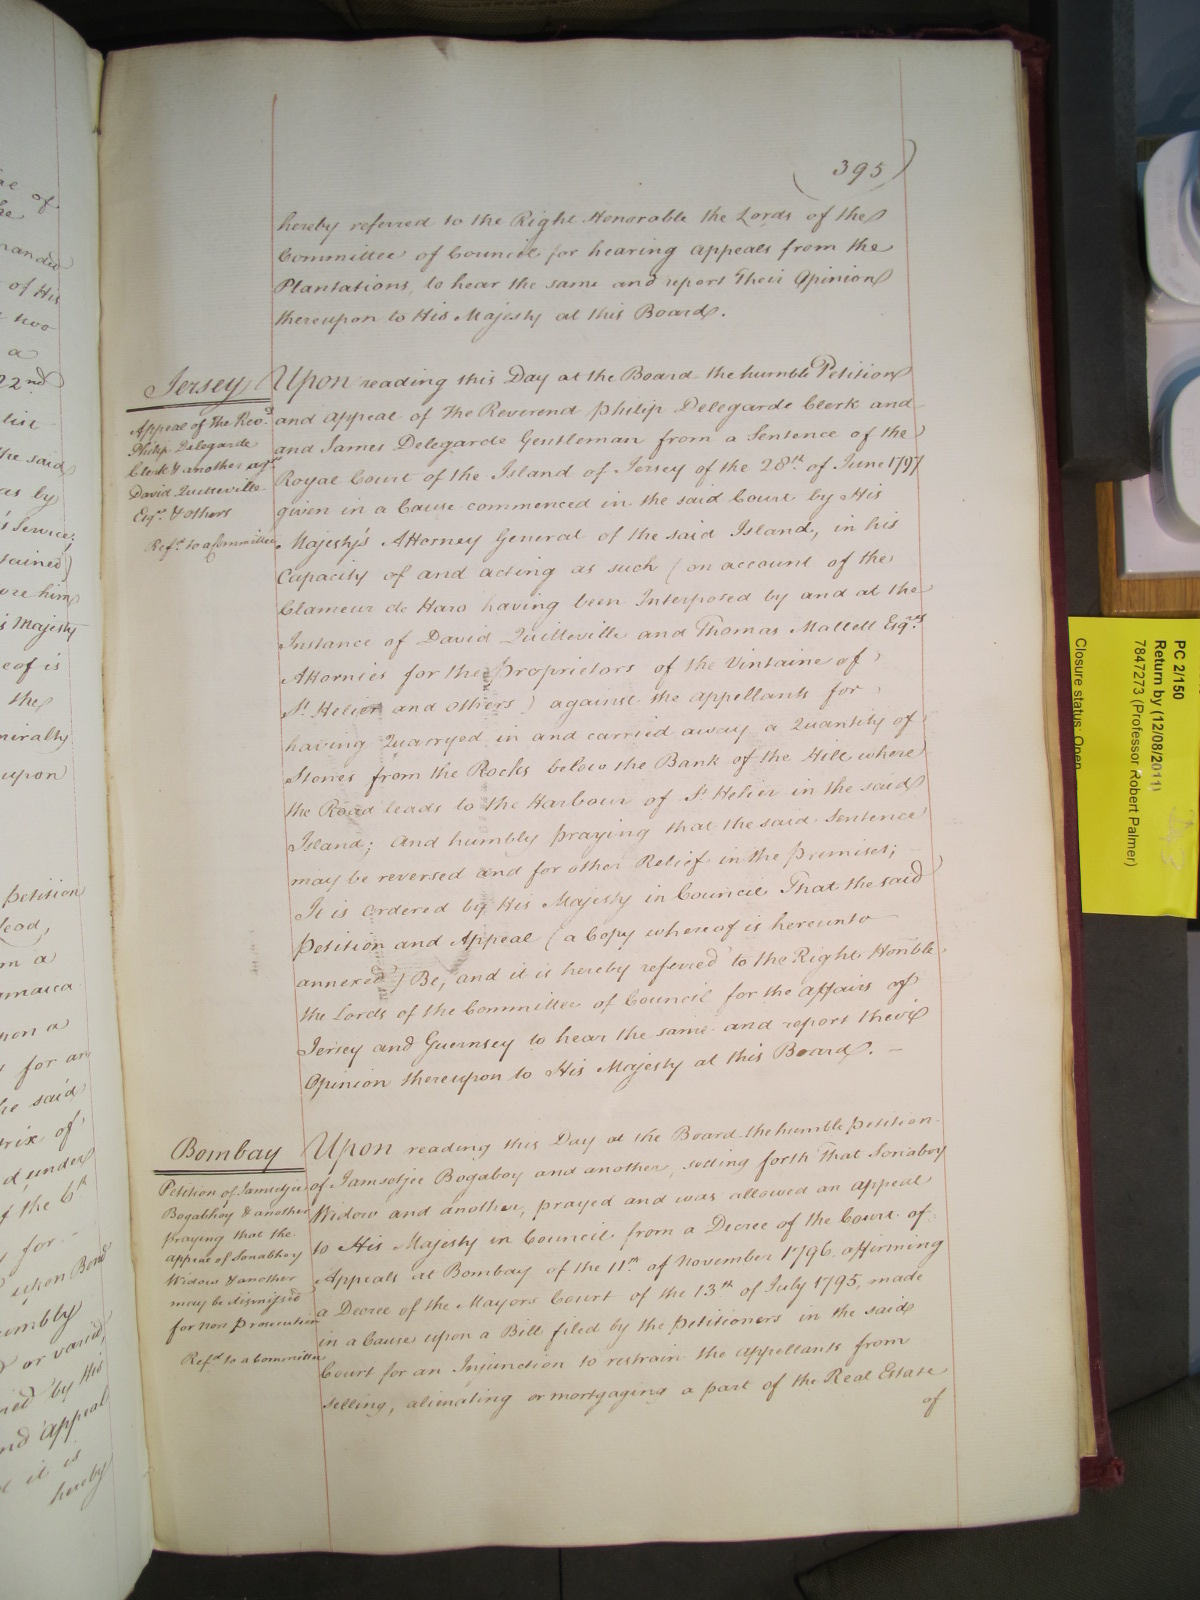 (395)
hereby referred to the Right Honorable the Lords of the
Committee of Council for hearing appeals from the
Plantations, to hear the same and report Their Opinion
thereupon to His Majesty at this Board.
Jersey
Appeal of The Revd.
Philip Delegarde
Clerk & another agt.
David Quitteville
Esqr. & others
Refd. to a Committee
Upon reading this Day at the Board the humble Petition
and appeal of The Reverend Philip Delegarde Clerk and
and James Delegarde Gentleman from a Sentence of the
Royal Court of the Island of Jersey of the 28th. of June 1797
given in a Cause commenced in the said Court by His
Majesty's Attorney General of the said Island, in his
Capacity of and acting as such (on account of the
Clameur de Haro having been Interposed by and at the
Instance of David Quitteville and Thomas Mallett Esqrs.
Attornies for the Proprietors of the Vintaine of
St. Helier and others) against the appellants for
having Quarryed in and carried away a Quantity of
Stones from the Rocks below the Bank of the Hill where
the Road leads to the Harbour of St Helier in the said
Island; And humbly praying that the said Sentence
may be reversed and for other Relief in the premises;
It is ordered by His Majesty in Council That the said
Petition and Appeal (a Copy whereof is hereunto
annexed) Be, and it is hereby referred to the Right Honble
the Lords of the Committee of Council for the affairs of
Jersey and Guernsey to hear the same and report their
Opinion thereupon to His Majesty at this Board. —
Bombay
Petition of Jamsedjee
Bogabhoy & another
praying that the
appeal of Sonabhoy
Widow & another
may be dismissed
for non Prosecution
Refd. to a Committee
Upon reading this Day at the Board the humble Petition
of Jamsetjee Bogaboy and another, setting forth That Sonaboy
Widow and another, prayed and was allowed an appeal
to His Majesty in Council from a Decree of the Court of
Appeals at Bombay of the 11th. of November 1796 affirming
a Decree of the Mayors Court of the 13th of July 1795, made
in a Cause upon a Bill filed by the Petitioners in the said
Court for an Injunction to restrain the appellants from
selling, alienating or mortgaging a part of the Real Estate
of
PC 2/150
Return by (12/08/2011)
7847273 (Professor Robert Palmer)
Closure status: Open